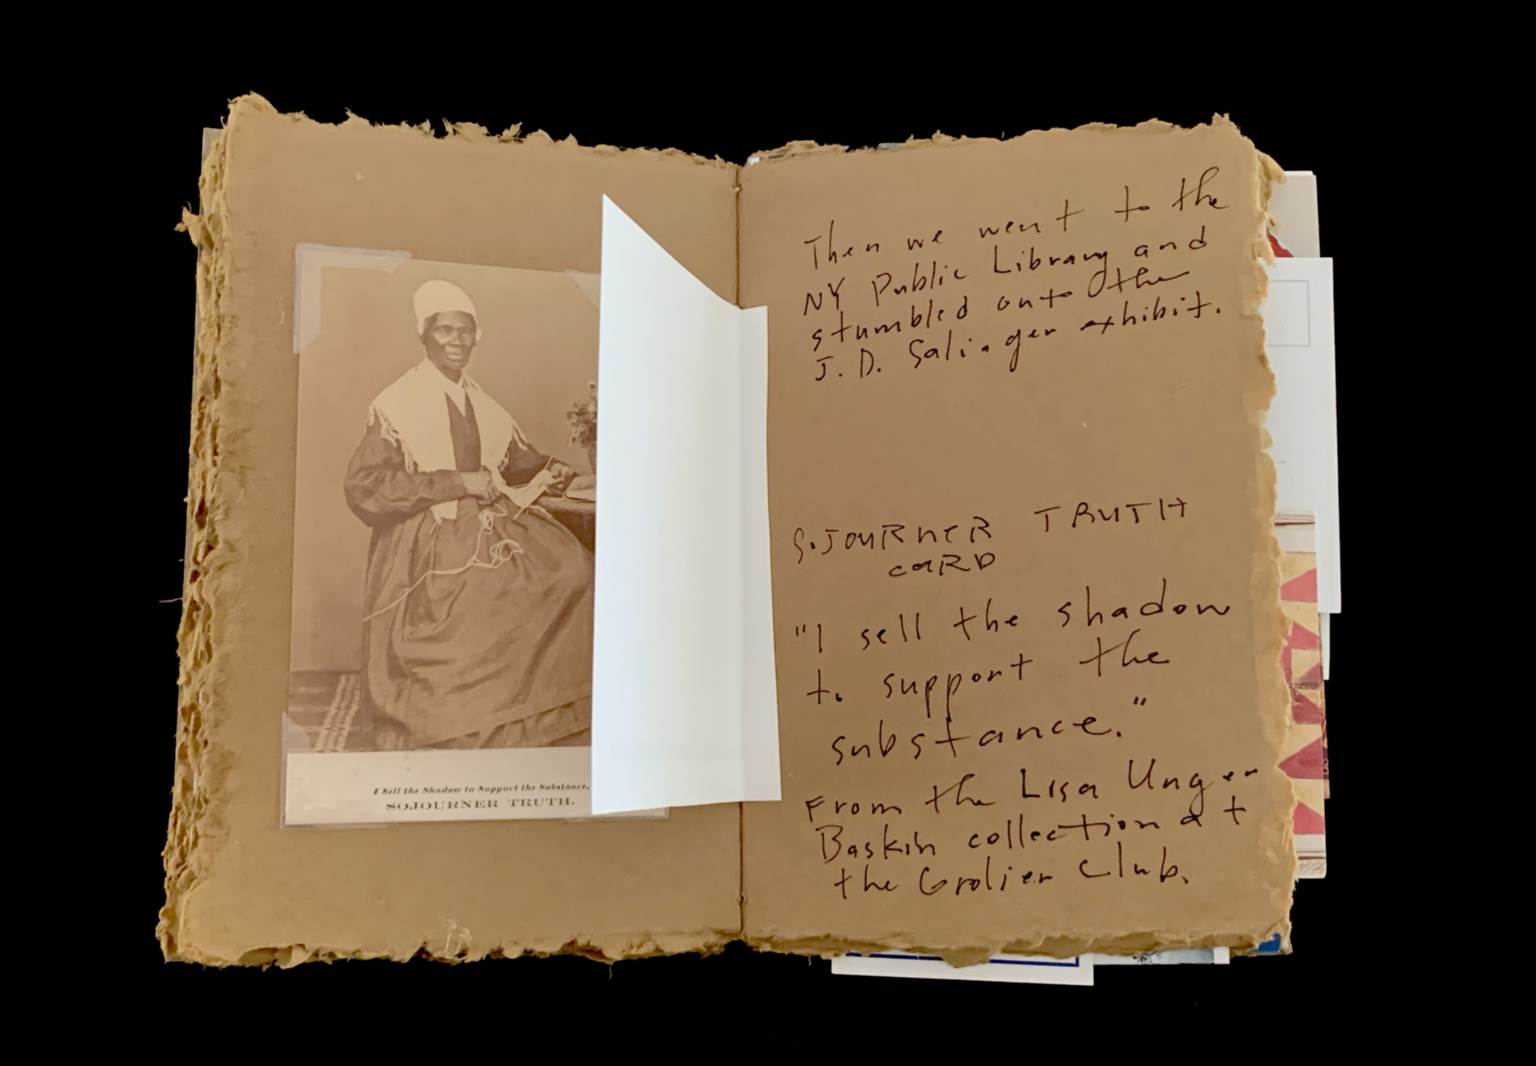 I Sell the Shadow to Support the Substance.
SOJOURNER TRUTH.
Then we went to the
NY Public Library and
stumbled onto the
J. D. Salinger exhibit.
SOJOURNER TRUTH
CARD
"I sell the shadow
to support the
substance."
From the Lisa Unger
Baskin collection at
the Grolier Club.